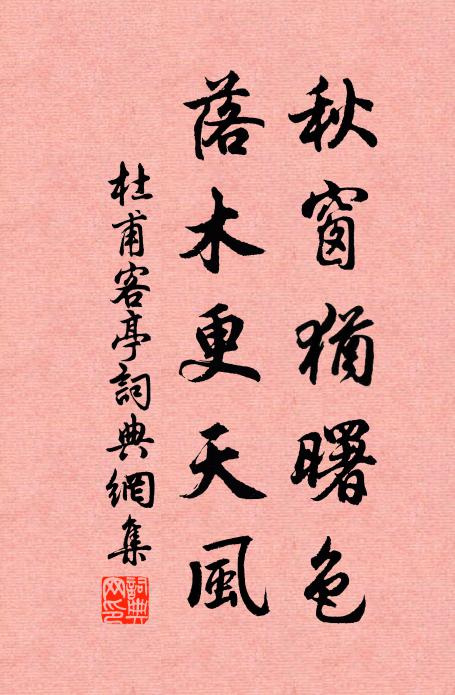 秋窗猶曙色
落木更天風
杜甫客亭詞典網集
詞典網印